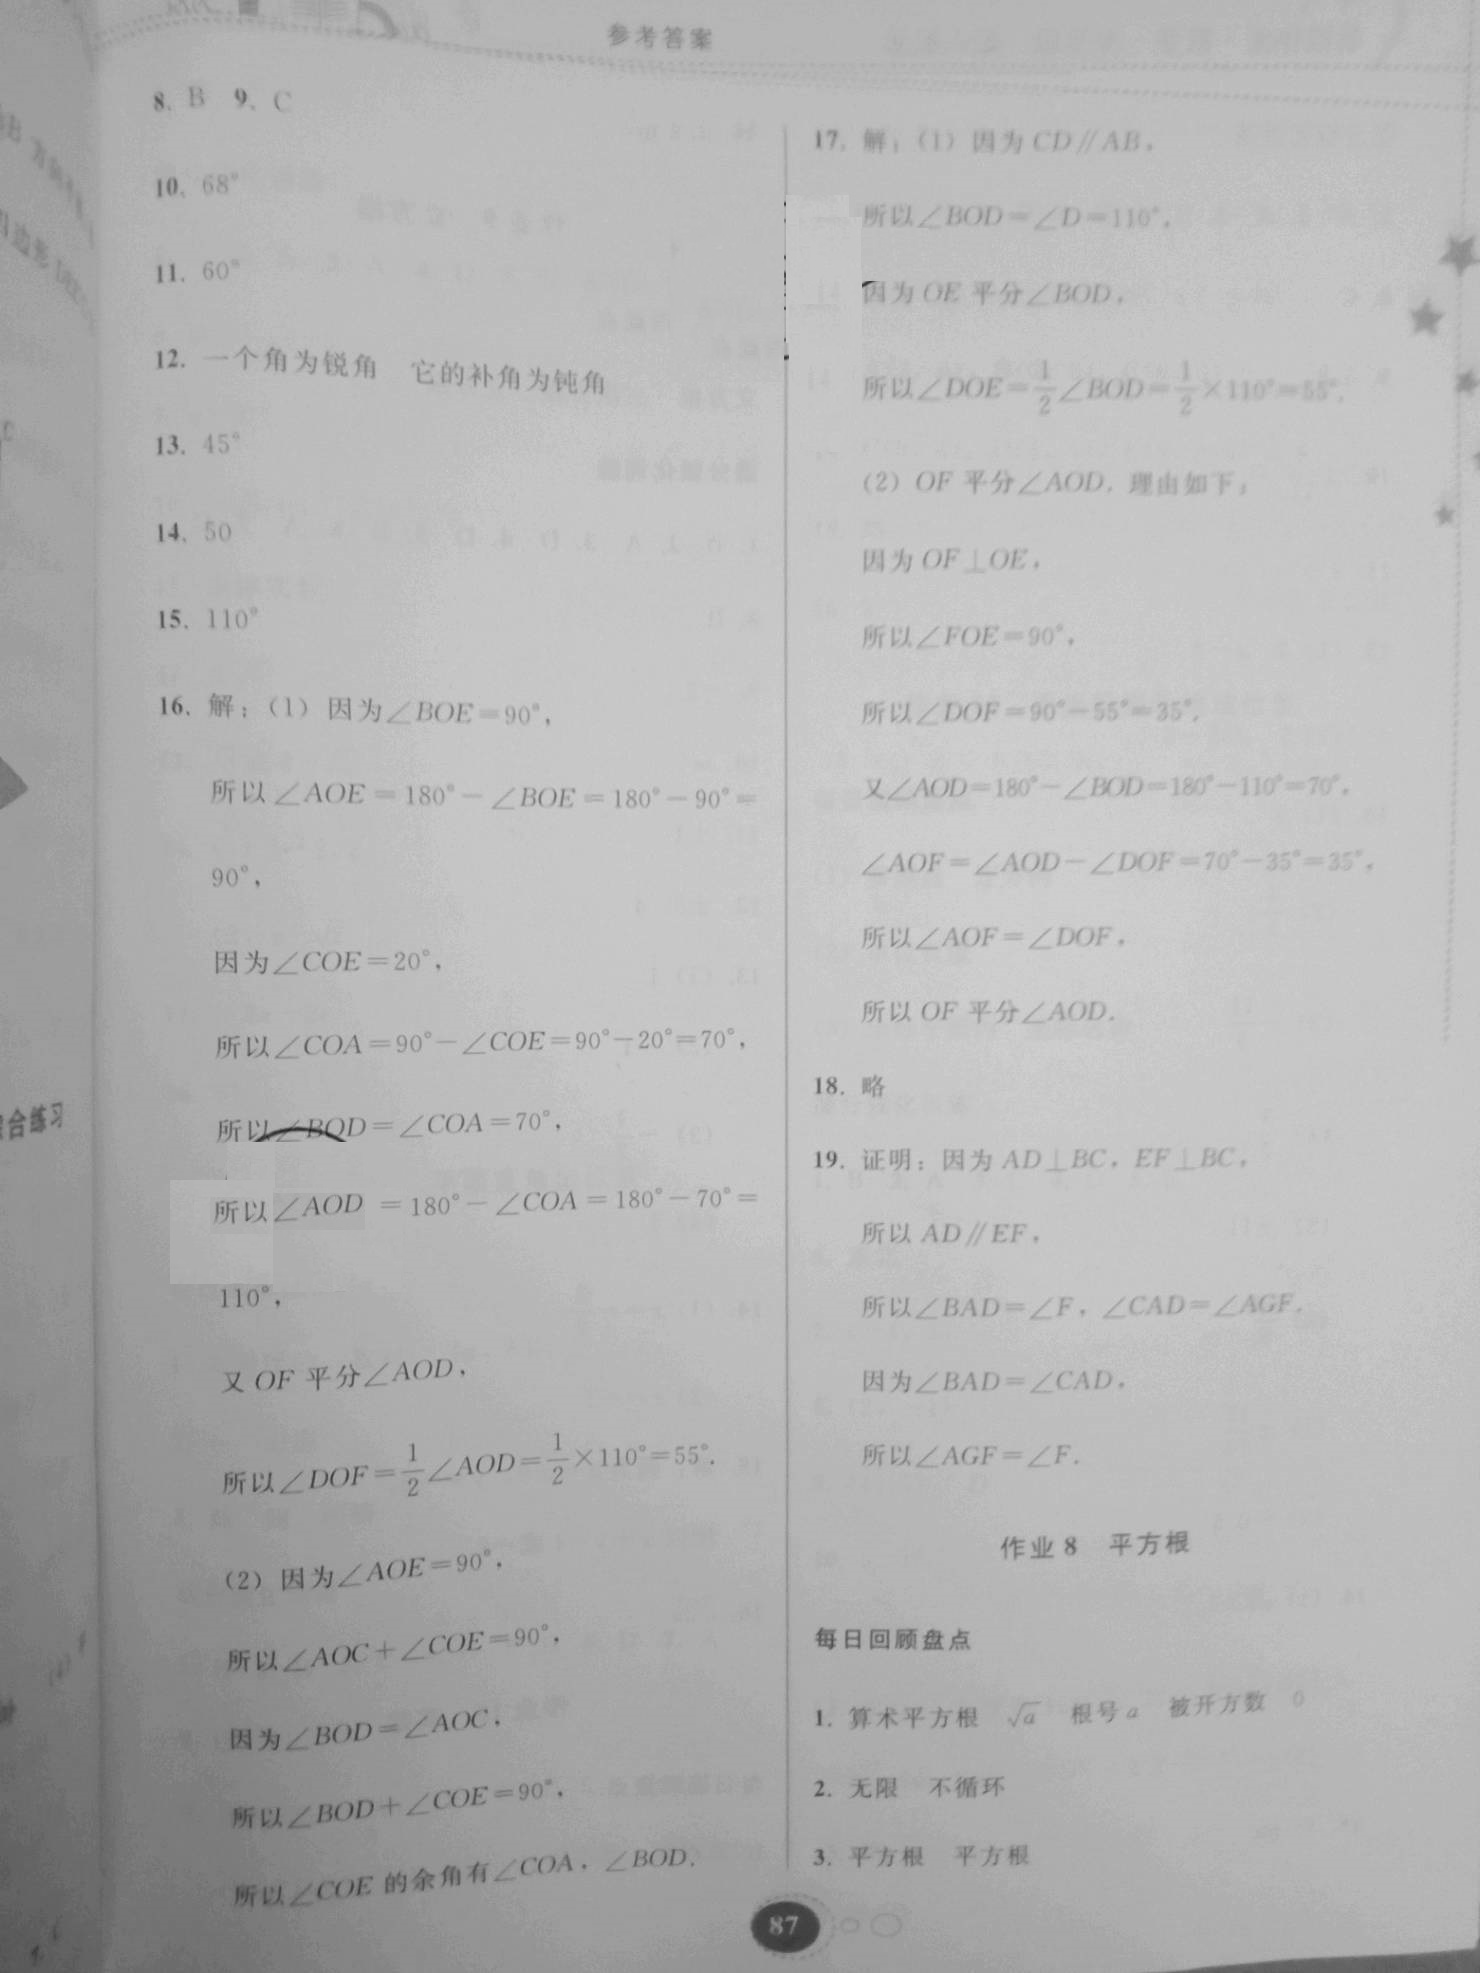 参考答案
8. B 9. C
10. 68°
11. 60°
12. 一个角为锐角 它的补角为钝角
13. 45°
14. 50
15. 110°
16. 解:(1) 因为∠BOE=90°,
所以∠AOE=180°-∠BOE=180°-90°=
90°,
因为∠COE=20°,
所以∠COA=90°-∠COE=90°-20°=70°,
所以∠BOD=∠COA=70°,
所以∠AOD=180°-∠COA=180°-70°=
110°,
又 OF 平分∠AOD,
所以∠DOF=1/2∠AOD=1/2×110°=55°.
(2) 因为∠AOE=90°,
所以∠AOC+∠COE=90°,
因为∠BOD=∠AOC,
所以∠BOD+∠COE=90°,
所以∠COE 的余角有∠COA,∠BOD.
17. 解:(1) 因为 CD∥AB,
所以∠BOD=∠D=110°,
因为 OE 平分∠BOD,
所以∠DOE=1/2∠BOD=1/2×110°=55°.
(2) OF 平分∠AOD. 理由如下:
因为 OF⊥OE,
所以∠FOE=90°,
所以∠DOF=90°-55°=35°.
又∠AOD=180°-∠BOD=180°-110°=70°,
∠AOF=∠AOD-∠DOF=70°-35°=35°,
所以∠AOF=∠DOF,
所以 OF 平分∠AOD.
18. 略
19. 证明:因为 AD⊥BC,EF⊥BC,
所以 AD∥EF,
所以∠BAD=∠F,∠CAD=∠AGF.
因为∠BAD=∠CAD,
所以∠AGF=∠F.
作业 8 平方根
每日回顾盘点
1. 算术平方根 √a 根号 a 被开方数 0
2. 无限 不循环
3. 平方根 平方根
87
合练习